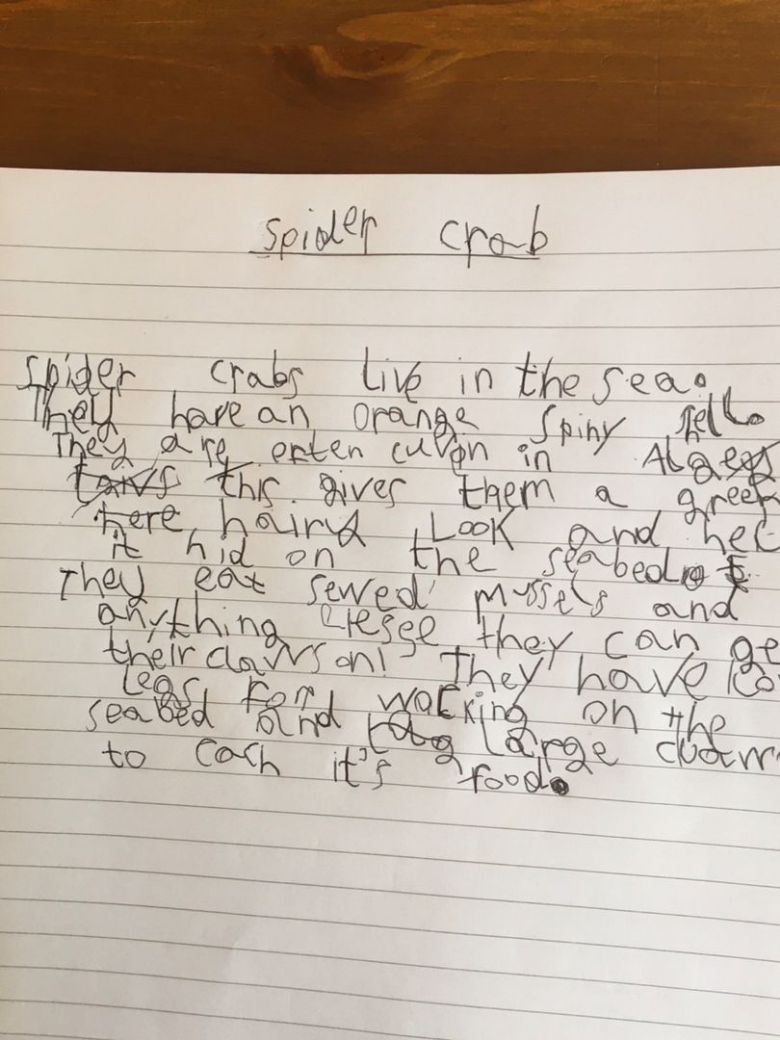 spider crab
spider crabs live in the sea.
They have an orange spiny
They are in
this gives them a green
here hairy Look and
it hid on the seabed.
They eat sewed mussels and
anything they can ge
their claws on! They have
Legs for walking on the
seabed and large
to cach it's food.